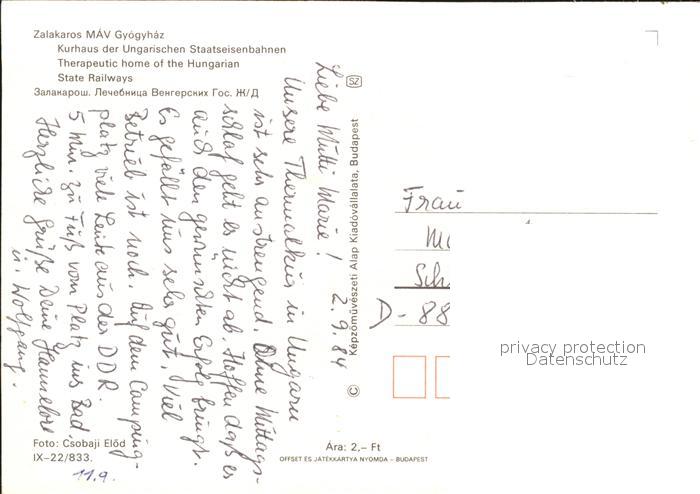 Zalakaros MÁV Gyógyház
Kurhaus der Ungarischen Staatseisenbahnen
Therapeutic home of the Hungarian
State Railways
Залакарош. Лечебница Венгерских Гос. Ж/Д
Liebe Mutti Marie! 2.9.84
Unsere Thermalkur in Ungarn
ist sehr anstrengend. Ohne Mittags-
schlaf geht es nicht ab. Hoffen daß es
auch den gewünschten Erfolg bringt.
Es gefällt uns sehr gut. Viel
Betrieb ist noch. Auf dem Camping-
platz viele Leute aus der DDR.
5 Min. zu Fuß vom Platz ins Bad.
Herzliche Grüße Deine Hannelore
u. Wolfgang.
Foto: Csobaji Előd
IX-22/833.
11.9.
SZ
© Képzőművészeti Alap Kiadóvállalata, Budapest
Ára: 2,– Ft
OFFSET ÉS JÁTÉKKÁRTYA NYOMDA – BUDAPEST
Frau
Sch
D-88
privacy protection
Datenschutz